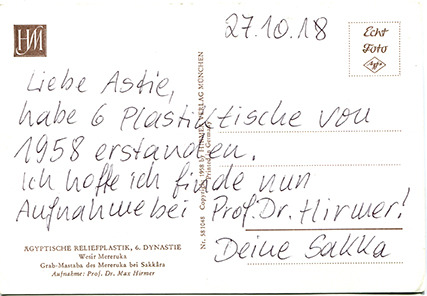 HM
27.10.18
Echt
Foto
Agfa
Liebe Astie,
habe 6 Plastiktische von
1958 erstanden.
Ich hoffe ich finde nun
Aufnahme bei Prof. Dr. Hirmer!
Deine Sakka
ÄGYPTISCHE RELIEFPLASTIK, 6. DYNASTIE
Wesir Mereruka
Grab-Mastaba des Mereruka bei Sakkâra
Aufnahme: Prof. Dr. Max Hirmer
Nr. 581048 Copyright 1958 by HIRMER VERLAG MÜNCHEN
Printed in Germany